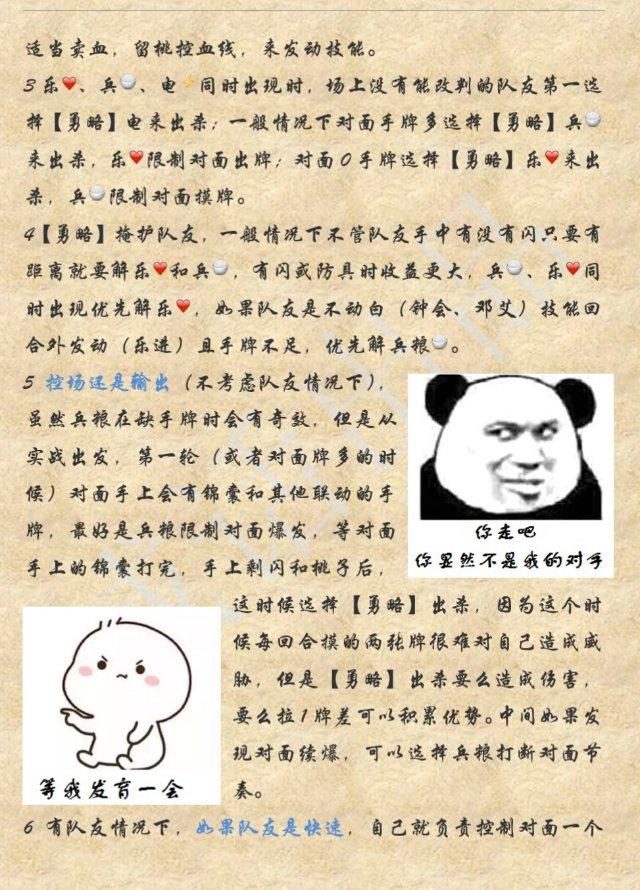 适当卖血，留桃控血线，来发动技能。
3 乐❤️、兵🍚、电⚡同时出现时，场上没有能改判的队友第一选
择【勇略】电来出杀；一般情况下对面手牌多选择【勇略】兵🍚
来出杀，乐❤️限制对面出牌；对面0手牌选择【勇略】乐❤️来出
杀，兵🍚限制对面摸牌。
4【勇略】掩护队友，一般情况下不管队友手中有没有闪只要有
距离就要解乐❤️和兵🍚，有闪或防具时收益更大，兵🍚、乐❤️同
时出现优先解乐❤️，如果队友是不动白（钟会、邓艾）技能回
合外发动（乐进）且手牌不足，优先解兵粮🍚。
5 控场还是输出（不考虑队友情况下），
虽然兵粮在缺手牌时会有奇效，但是从
实战出发，第一轮（或者对面牌多的时
候）对面手上会有锦囊和其他联动的手
牌，最好是兵粮限制对面爆发，等对面
手上的锦囊打完，手上剩闪和桃子后，
你走吧
你显然不是我的对手
这时候选择【勇略】出杀，因为这个时
候每回合摸的两张牌很难对自己造成威
胁，但是【勇略】出杀要么造成伤害，
要么拉1牌差可以积累优势。中间如果发
现对面续爆，可以选择兵粮打断对面节
奏。
等我发育一会
6 有队友情况下，如果队友是快速，自己就负责控制对面一个